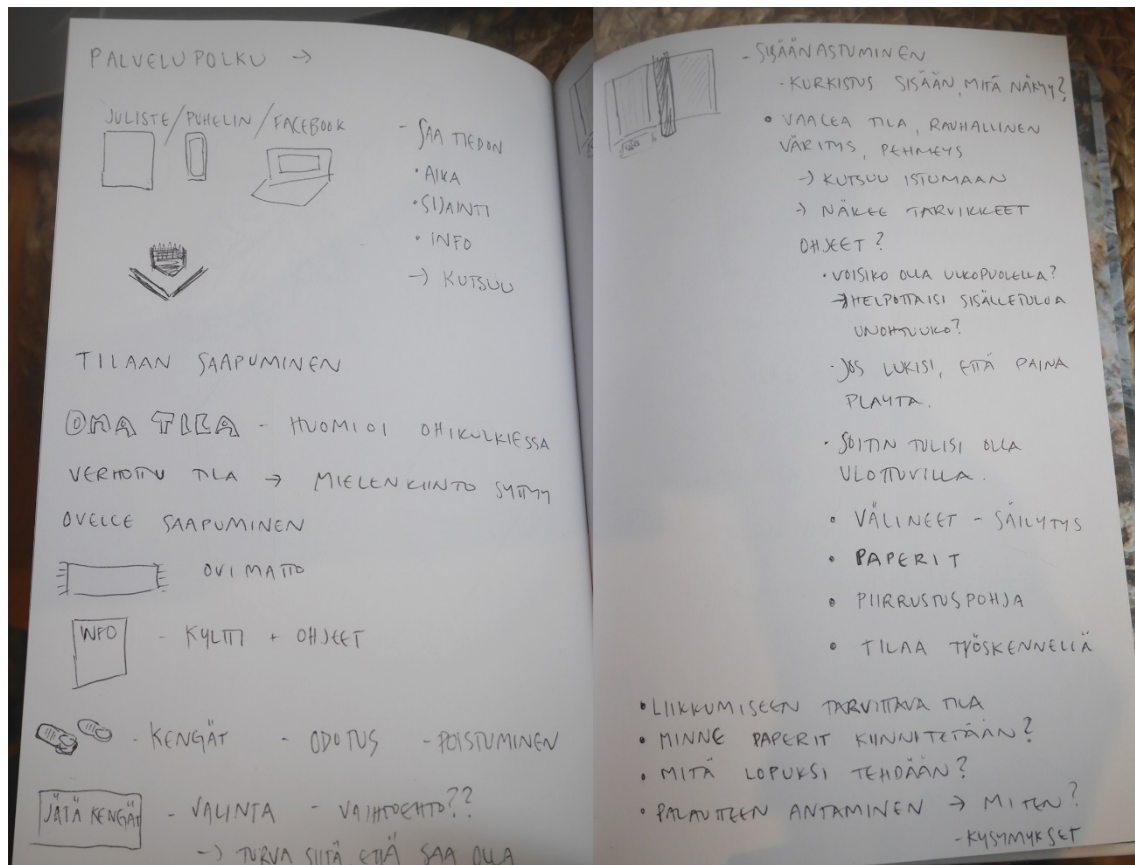 PALVELUPOLKU →
JULISTE / PUHELIN / FACEBOOK
- SAA TIEDON
• AIKA
• SIJAINTI
• INFO
→ KUTSUU
TILAAN SAAPUMINEN
OMA TILA - HUOMIOI OHIKULKIESSA
VERHOTTU TILA → MIELENKIINTO SYTTYY
OVELLE SAAPUMINEN
OVIMATTO
INFO - KYLTTI + OHJEET
- KENGÄT - ODOTUS - POISTUMINEN
JÄTÄ KENGÄT - VALINTA - VAIHTOEHTO??
→ TURVA SIITÄ ETTÄ SAA OLLA
- SISÄÄNASTUMINEN
- KURKISTUS SISÄÄN, MITÄ NÄKYY?
• VAALEA TILA, RAUHALLINEN
VÄRITYS, PEHMEYS
→ KUTSUU ISTUMAAN
→ NÄKEE TARVIKKEET
OHJEET?
• VOISIKO OLLA ULKOPUOLELLA?
→ HELPOTTAISI SISÄLLETULOA
UNOHTUUKO?
• JOS LUKISI, ETTÄ PAINA
PLAYTA.
• SOITIN TULISI OLLA
ULOTTUVILLA.
• VÄLINEET - SÄILYTYS
• PAPERIT
• PIIRRUSTUSPOHJA
• TILAA TYÖSKENNELLÄ
• LIIKKUMISEEN TARVITTAVA TILA
• MINNE PAPERIT KIINNITETÄÄN?
• MITÄ LOPUKSI TEHDÄÄN?
• PALAUTTEEN ANTAMINEN → MITEN?
- KYSYMYKSET